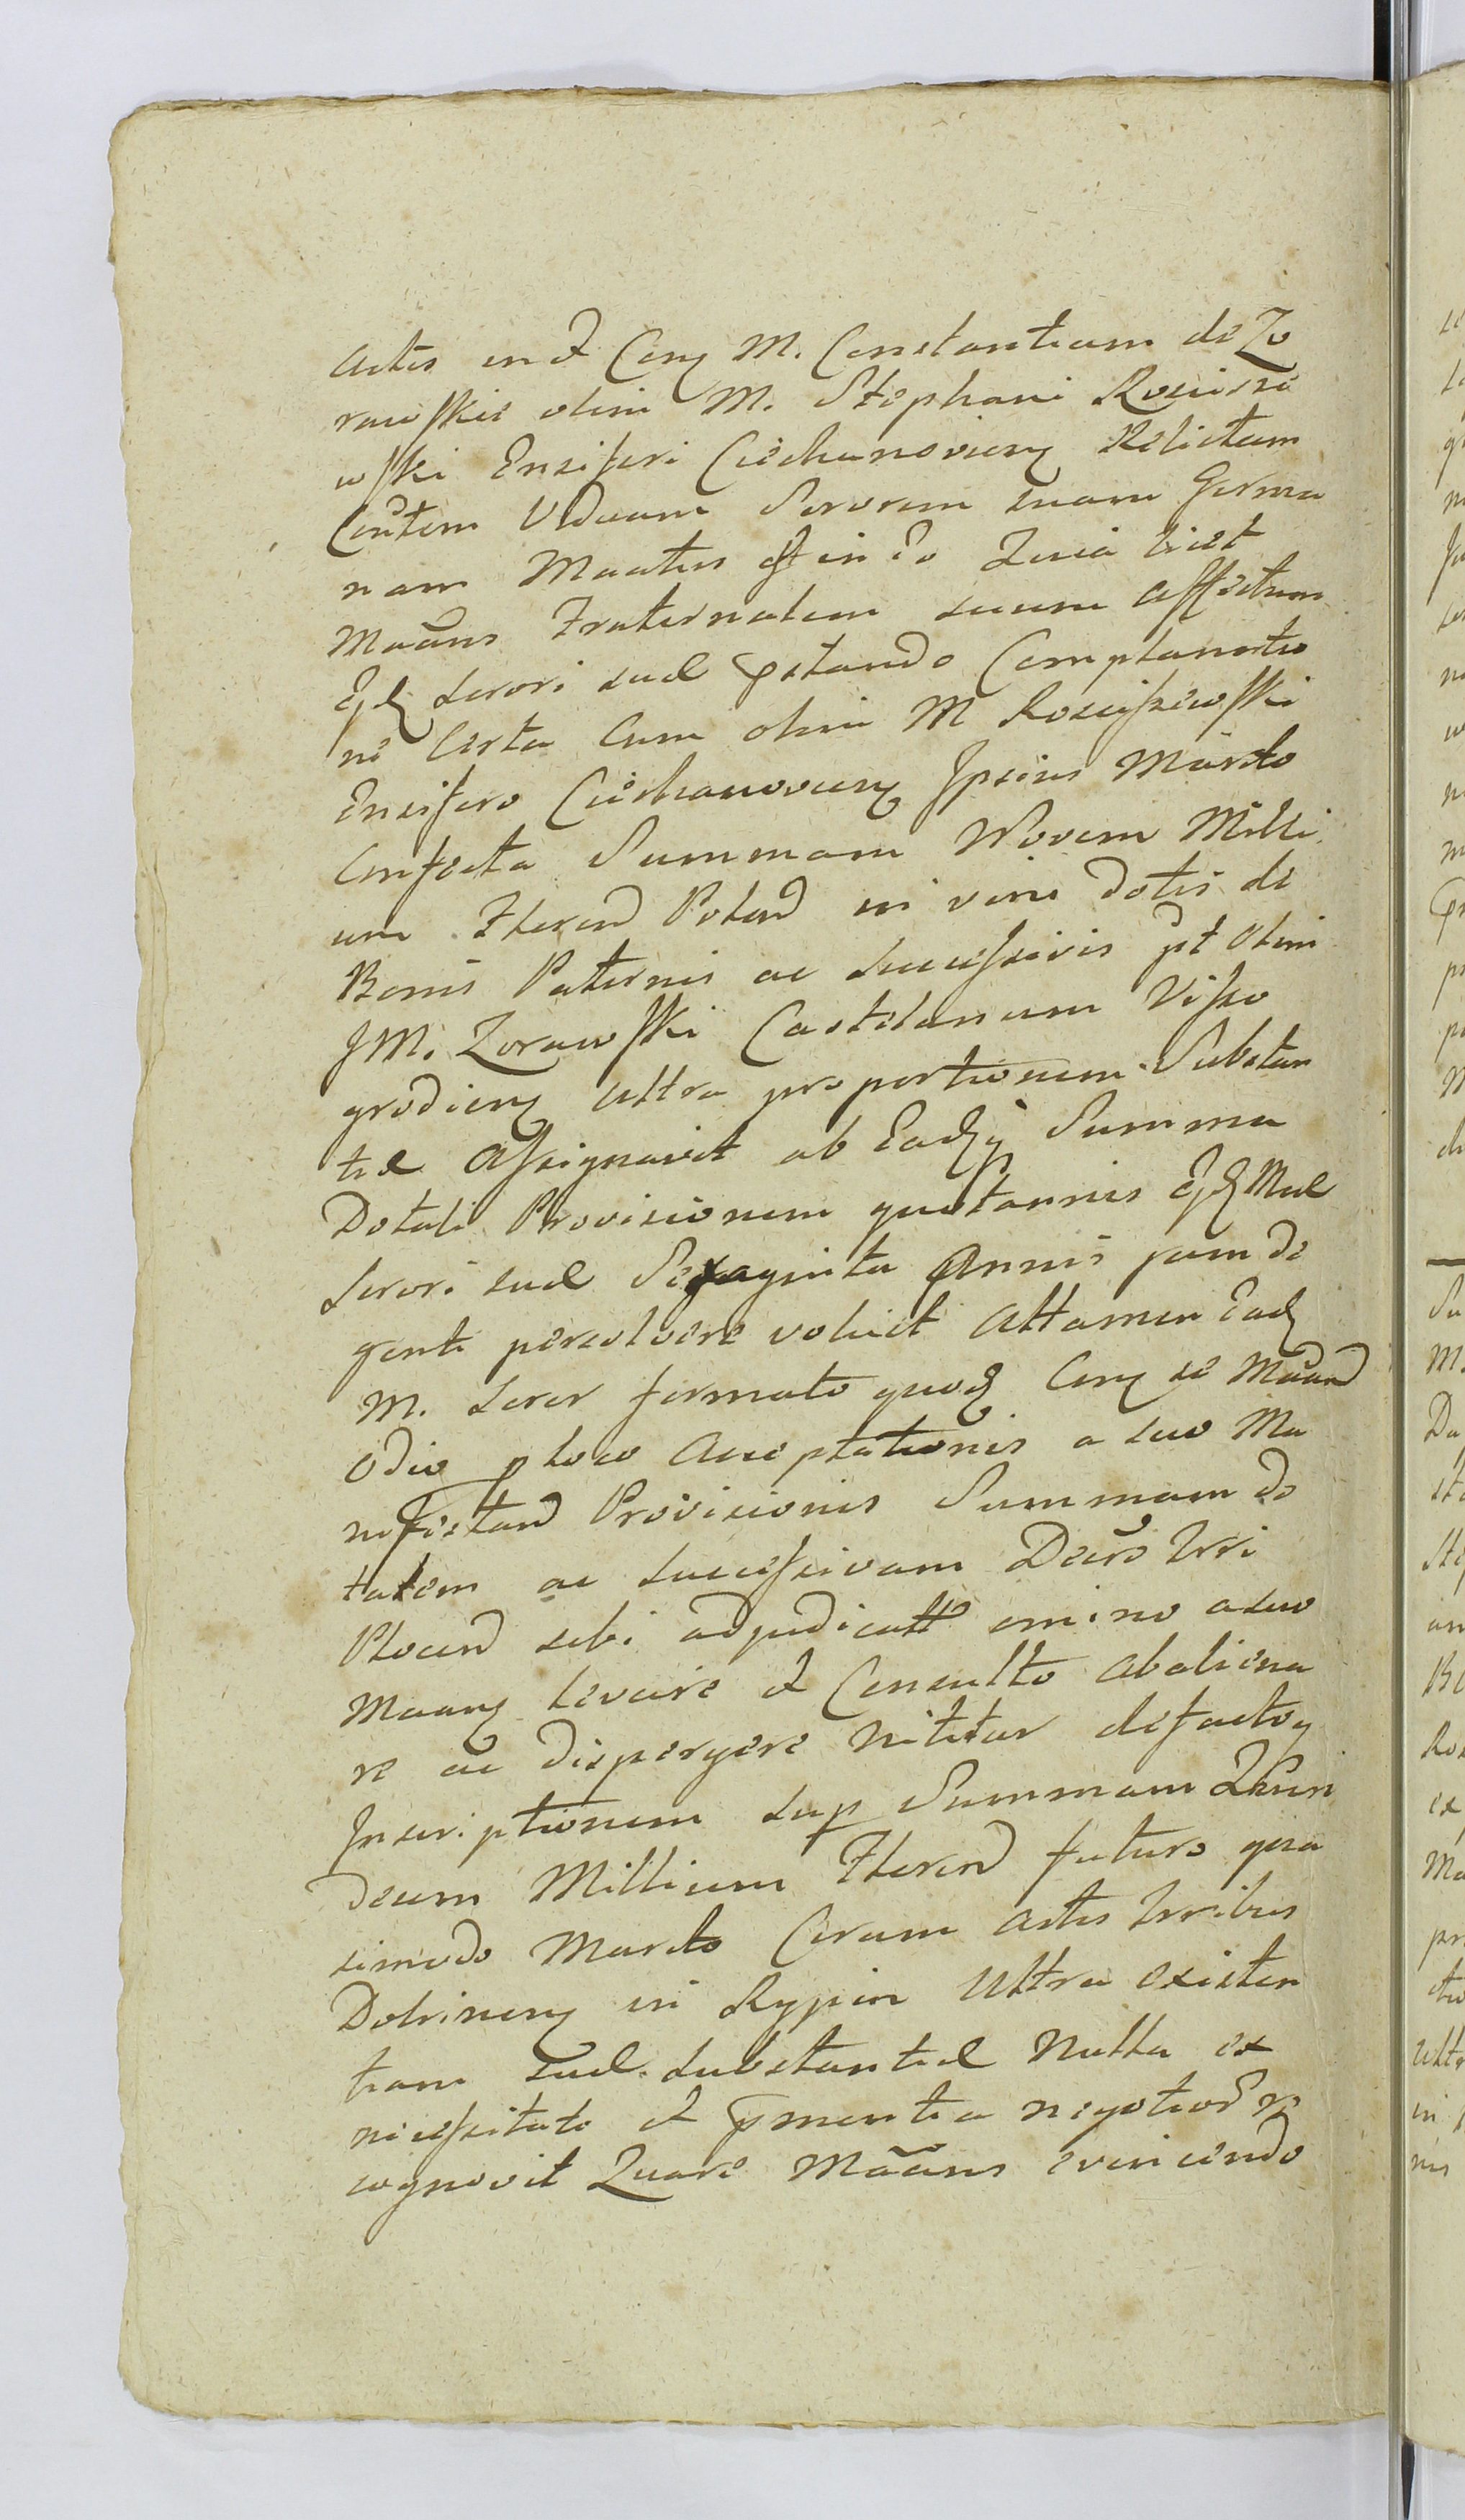 actis in et Conȝ M. Constantiam de Zo
rawskie olim M. Stephani Rosciszo
wski Ensiferi Ciechanovienȝ Relictam
Contem Viduam Sororem suam Germa
nam Maatus est in eo Quia licet
Maãns Fraternalem suum affectum
Ejdȝ sorori suæ pstando Complanatio
ne Certa Cum olim M Rosciszewski
Ensifero Ciechanovienȝ Ipsius Marito
Confecta Summam Novem Milli
um Floren Polon in vim Dotis de
Bonis Paternis ac Successivis pt Olim
JM. Zorawski Castelanum Visso
grodienȝ ultra proportionem Substan
tiæ Assignavit ab Eadȝ Summa
Dotali Provisionem quotannis Ejdȝ Mæ
sorori suæ Sexaginta Annis jam de
genti persolvere voluit Attamen Eadȝ
M. Soror formato quodȝ Conȝ se Maand
Odio p loco Acceptationis a suo Ma
nifestand Provisionis Summam do
talem ac Successivam Decro Trri
Plocen sibi adjudicatt omino a suo
Maanȝ levare et Consulto Abaliena
re ac dispergere Nititur defactoq
Inscriptionem sup Summam Quin
decim Millium Floren futuro qua
simodo Marito Coram Actis Trribus
Dobrinenȝ in Rypin Ultra Existen
tiam suæ substantiæ Nulla ex
necessitate et pmentia negotior re
cognovit Quare Maãns evincendo